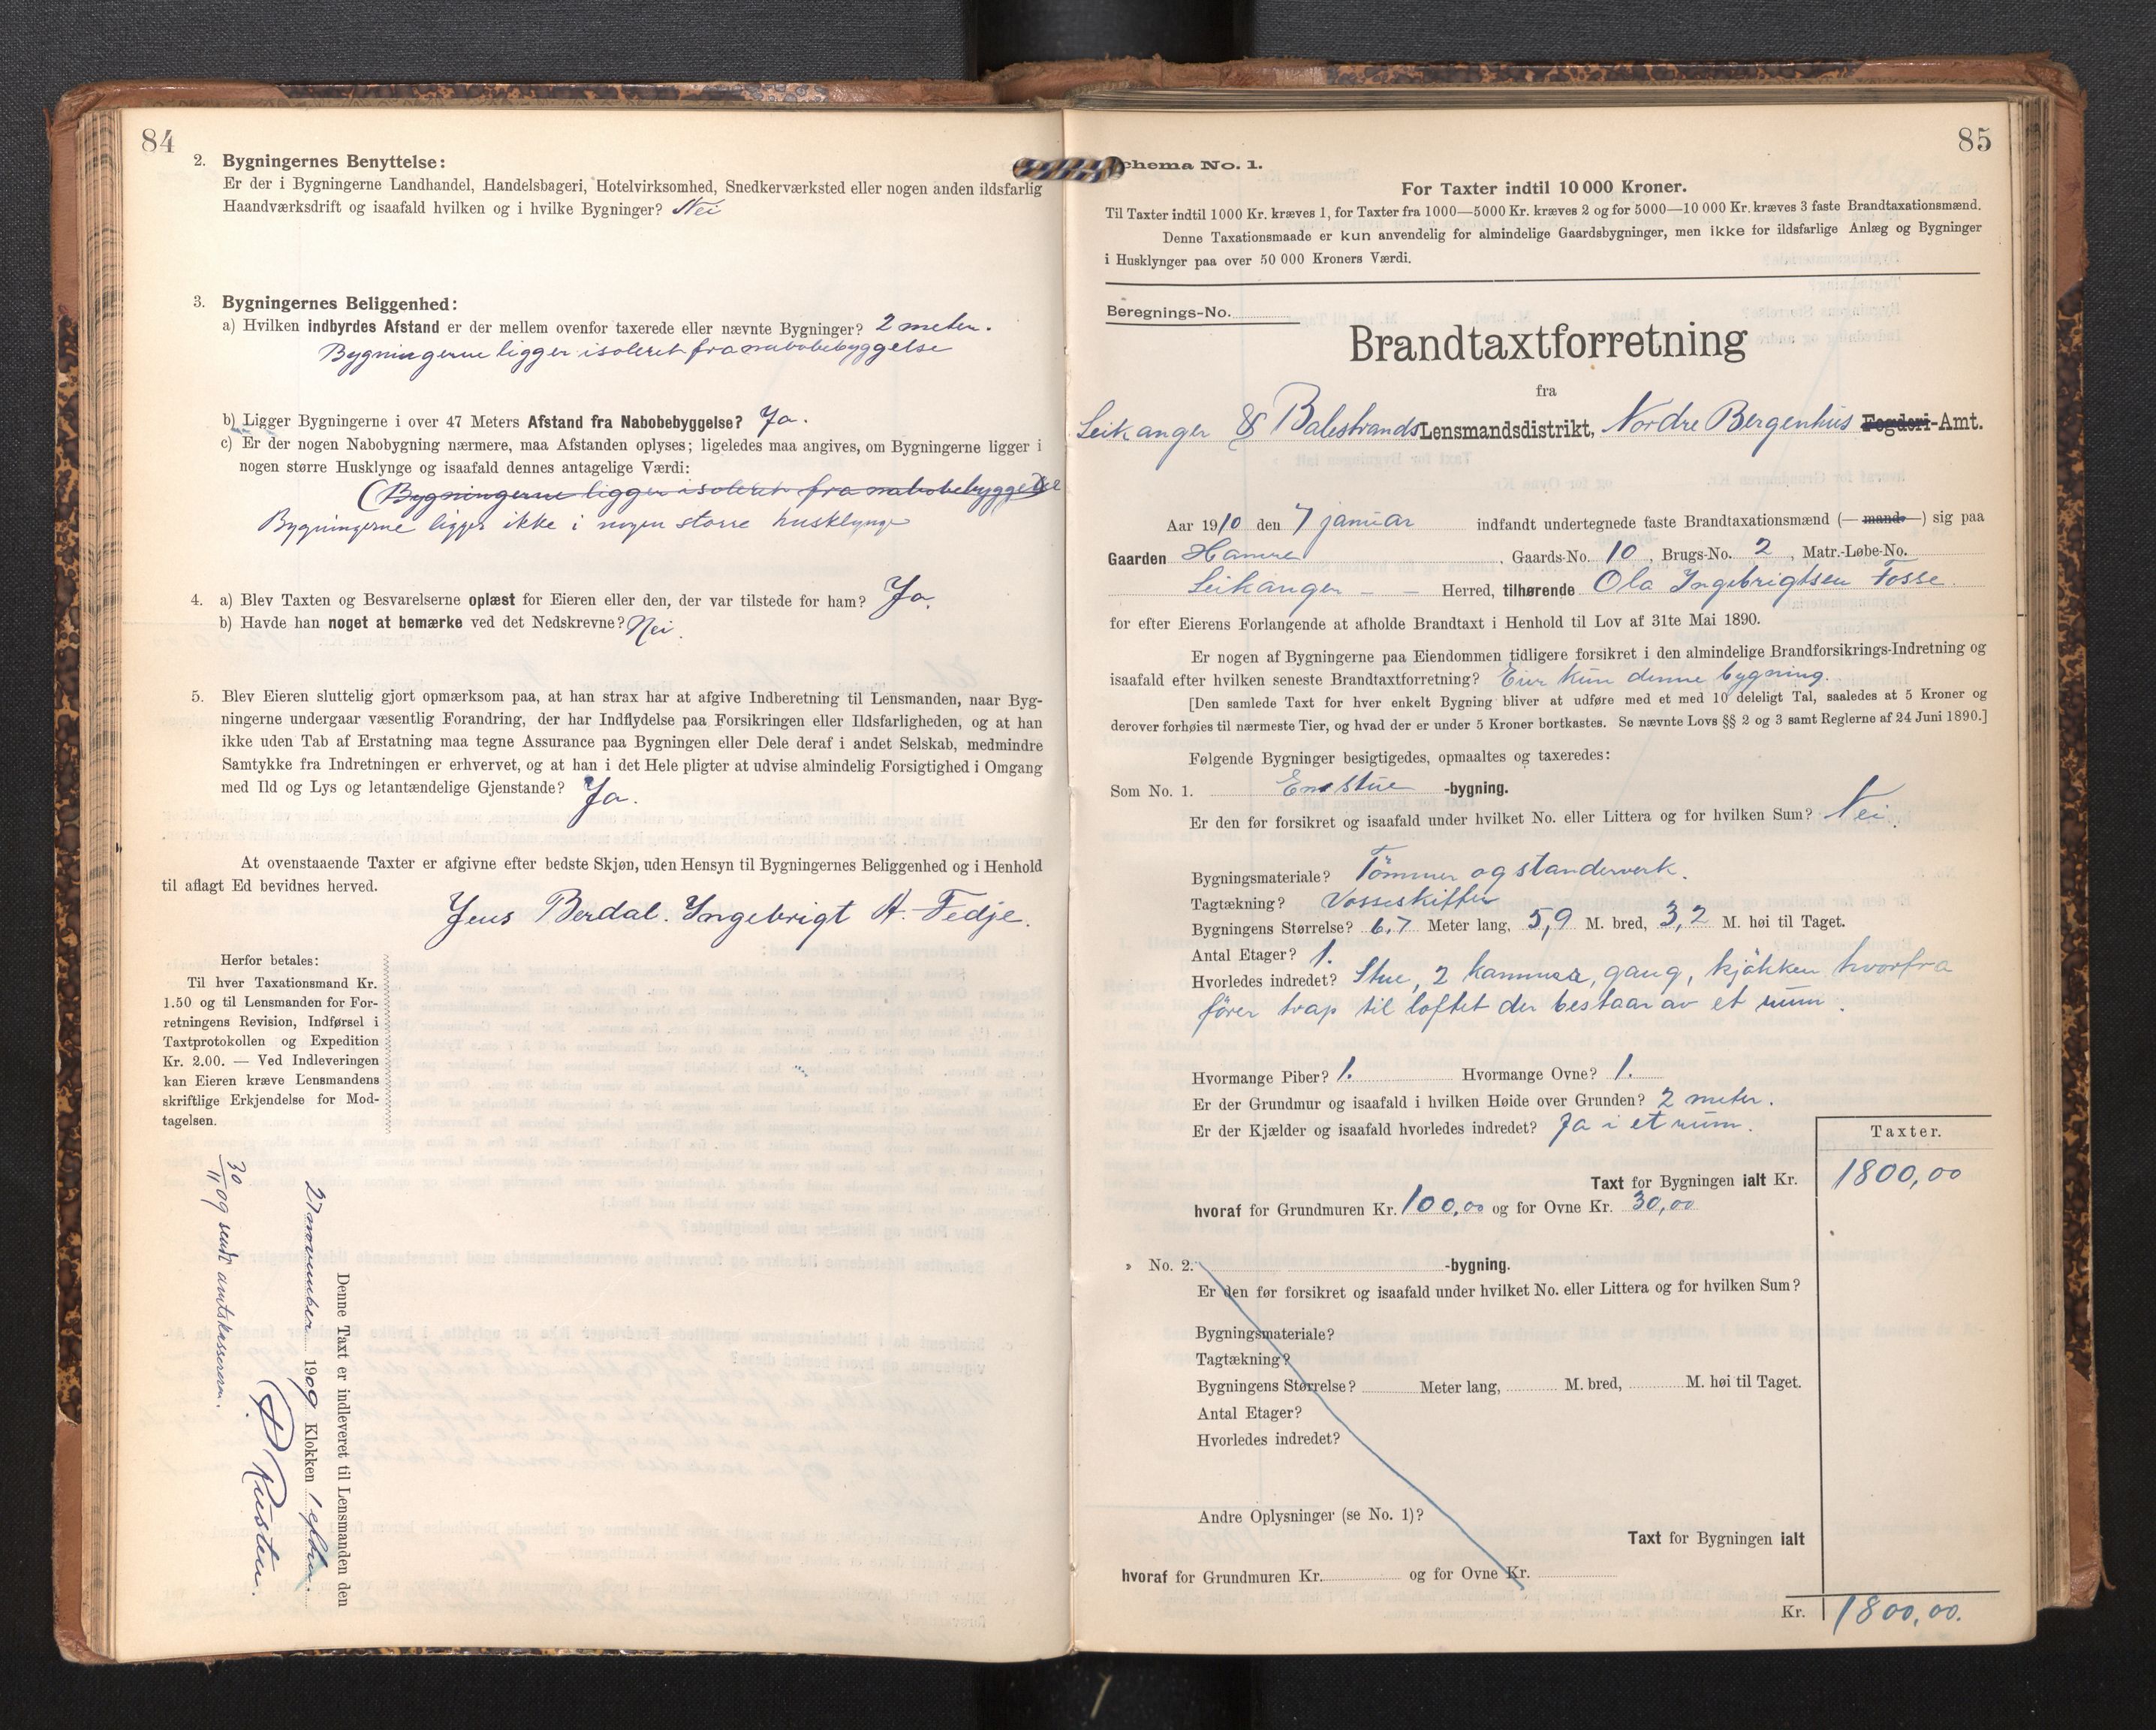 84
2. Bygningernes Benyttelse:
Er der i Bygningerne Landhandel, Handelsbageri, Hotelvirksomhed, Snedkerværksted eller nogen anden ildsfarlig
Haandværksdrift og isaafald hvilken og i hvilke Bygninger? Nei
3. Bygningernes Beliggenhed:
a) Hvilken indbyrdes Afstand er der mellem ovenfor taxerede eller nævnte Bygninger? 2 meter.
Bygningerne ligger isoleret fra nabobebyggelse
b) Ligger Bygningerne i over 47 Meters Afstand fra Nabobebyggelse? Ja.
c) Er der nogen Nabobygning nærmere, maa Afstanden oplyses; ligeledes maa angives, om Bygningerne ligger i
nogen større Husklynge og isaafald dennes antagelige Værdi:
(Bygningerne ligger isoleret fra nabobebyggelse
Bygningerne ligger ikke i nogen større husklynge
4. a) Blev Taxten og Besvarelserne oplæst for Eieren eller den, der var tilstede for ham? Ja.
b) Havde han noget at bemærke ved det Nedskrevne? Nei.
5. Blev Eieren sluttelig gjort opmærksom paa, at han strax har at afgive Indberetning til Lensmanden, naar Byg-
ningerne undergaar væsentlig Forandring, der har Indflydelse paa Forsikringen eller Ildsfarligheden, og at han
ikke uden Tab af Erstatning maa tegne Assurance paa Bygningen eller Dele deraf i andet Selskab, medmindre
Samtykke fra Indretningen er erhvervet, og at han i det Hele pligter at udvise almindelig Forsigtighed i Omgang
med Ild og Lys og letantændelige Gjenstande? Ja.
At ovenstaaende Taxter er afgivne efter bedste Skjøn, uden Hensyn til Bygningernes Beliggenhed og i Henhold
til aflagt Ed bevidnes herved.
Jens Berdal. Ingebrigt A. Fedje.
Herfor betales:
Til hver Taxationsmand Kr.
1.50 og til Lensmanden for For-
retningens Revision, Indførsel i
Taxtprotokollen og Expedition
Kr. 2.00. — Ved Indleveringen
kan Eieren kræve Lensmandens
skriftlige Erkjendelse for Mod-
tagelsen.
Denne Taxt er indleveret til Lensmanden den
27 november 1909 Klokken 1 efterm.
30/11 09 sendt amtskassereren.
85
Schema No. 1.
For Taxter indtil 10 000 Kroner.
Til Taxter indtil 1000 Kr. kræves 1, for Taxter fra 1000—5000 Kr. kræves 2 og for 5000—10 000 Kr. kræves 3 faste Brandtaxationsmænd.
Denne Taxationsmaade er kun anvendelig for almindelige Gaardsbygninger, men ikke for ildsfarlige Anlæg og Bygninger
i Husklynger paa over 50 000 Kroners Værdi.
Beregnings-No.
Brandtaxtforretning
fra
Leikanger & Balestrands Lensmandsdistrikt, Nordre Bergenhus Fogderi-Amt.
Aar 1910 den 7 januar indfandt undertegnede faste Brandtaxationsmænd (— mand —) sig paa
Gaarden Hamre, Gaards-No. 10, Brugs-No. 2, Matr.-Løbe-No.
Leikanger — — Herred, tilhørende Ola Ingebrigtsen Fosse.
for efter Eierens Forlangende at afholde Brandtaxt i Henhold til Lov af 31te Mai 1890.
Er nogen af Bygningerne paa Eiendommen tidligere forsikret i den almindelige Brandforsikrings-Indretning og
isaafald efter hvilken seneste Brandtaxtforretning? Eier kun denne bygning.
[Den samlede Taxt for hver enkelt Bygning bliver at udføre med et med 10 deleligt Tal, saaledes at 5 Kroner og
derover forhøies til nærmeste Tier, og hvad der er under 5 Kroner bortkastes. Se nævnte Lovs §§ 2 og 3 samt Reglerne af 24 Juni 1890.]
Følgende Bygninger besigtigedes, opmaaltes og taxeredes:
Som No. 1. Enstue -bygning.
Er den før forsikret og isaafald under hvilket No. eller Littera og for hvilken Sum? Nei.
Bygningsmateriale? Tömmer og standerverk.
Tagtækning? Vosseskiffer
Bygningens Størrelse? 6,7 Meter lang, 5,9 M. bred, 3,2 M. høi til Taget.
Antal Etager? 1.
Hvorledes indredet? Stue, 2 kammers, gang, kjökken hvorfra
förer trap til loftet der bestaar av et rum.
Hvormange Piber? 1. Hvormange Ovne? 1.
Er der Grundmur og isaafald i hvilken Høide over Grunden? 2 meter.
Er der Kjælder og isaafald hvorledes indredet? Ja i et rum.
Taxter.
Taxt for Bygningen ialt Kr. 1800,00
hvoraf for Grundmuren Kr. 100,00 og for Ovne Kr. 30,00
» No. 2. -bygning.
Er den før forsikret og isaafald under hvilket No. eller Littera og for hvilken Sum?
Bygningsmateriale?
Tagtækning?
Bygningens Størrelse? Meter lang, M. bred, M. høi til Taget.
Antal Etager?
Hvorledes indredet?
Andre Oplysninger (se No. 1)?
Taxt for Bygningen ialt
hvoraf for Grundmuren Kr. og for Ovne Kr.
Kr. 1800,00.